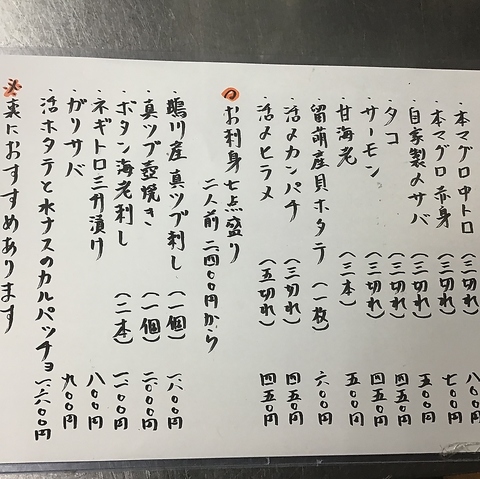 ・本マグロ中トロ（三切れ）八〇〇円
・本マグロ赤身（三切れ）七〇〇円
・自家製〆サバ（三切れ）五〇〇円
・タコ（三切れ）四五〇円
・サーモン（三切れ）四五〇円
・甘海老（三本）五〇〇円
・留萌産貝ホタテ（一枚）六〇〇円
・活〆カンパチ（三切れ）四五〇円
・活〆ヒラメ（五切れ）四五〇円
お刺身七点盛り
二人前二四〇〇円から
・鵡川産真ツブ刺し（一個）一八〇〇円
・真ツブ壺焼き（一個）二〇〇〇円
・ボタン海老刺し（二本）一二〇〇円
・ネギトロ三升漬け八〇〇円
・ガリサバ九〇〇円
・活ホタテと水ナスのカルパッチョ一六〇〇円
※裏におすすめあります